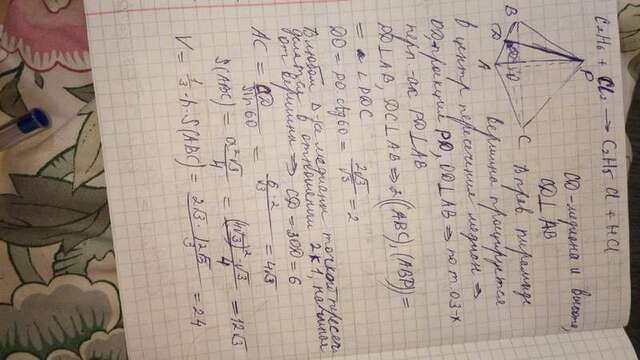 C₂H₆ + Cl₂ → C₂H₅Cl + HCl
CD - медиана и высота,
CD ⊥ AB
P
B
D
O
A
C
В прав. пирамиде
вершина проецируется
в центр пересечения медиан ⇒
OD - проекция PD, OD ⊥ AB ⇒ по т. о 3-х
перп-ах PD ⊥ AB
PD ⊥ AB, DC ⊥ AB ⇒ ∠((ABC), (ABP)) =
= ∠ PDC
DO = PO ctg 60 = 2√3/√3 = 2
В любом Δ-ке медианы точкой пересеч
делятся в отношении 2 к 1, начиная
от вершины ⇒ CD = 3DO = 6
AC = CD/sin 60 = 6·2/√3 = 4√3
S(ABC) = a²√3/4 = (4√3)²·√3/4 = 12√3
V = 1/3 · h · S(ABC) = 2√3 · 12√3/3 = 24